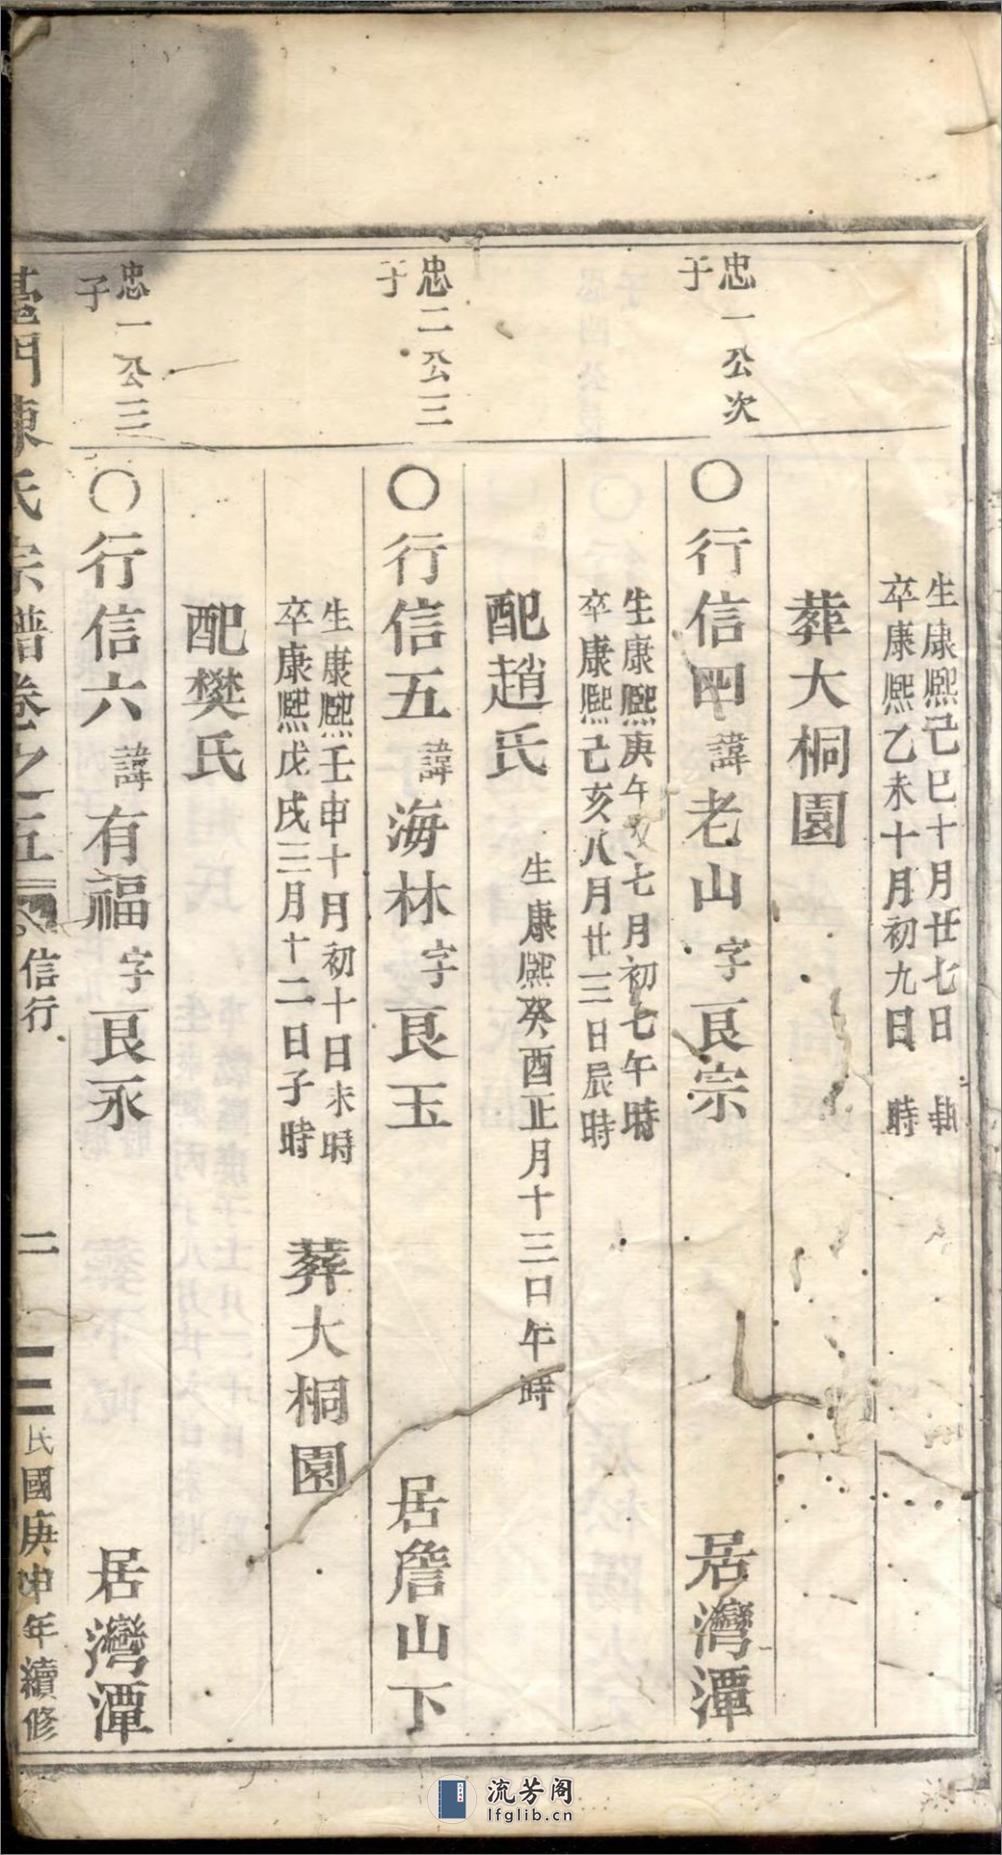 生康熙己巳十月廿七日　時
卒康熙乙未十月初九日　時
葬大桐園
忠一公次
子
○行信四諱老山字良宗　居灣潭
生康熙庚午　七月初七午時
卒康熙己亥八月廿三日辰時
配趙氏
生康熙癸酉正月十三日午時
忠二公三
子
○行信五諱海林字良玉　居詹山下
生康熙壬申十月初十日未時
卒康熙戊戌三月十二日子時
葬大桐園
配樊氏
忠一公三
子
○行信六諱有福字良永　居灣潭
臺門陳氏宗譜卷之五
信行
二
民國庚申年續修
流芳阁
lfglib.cn